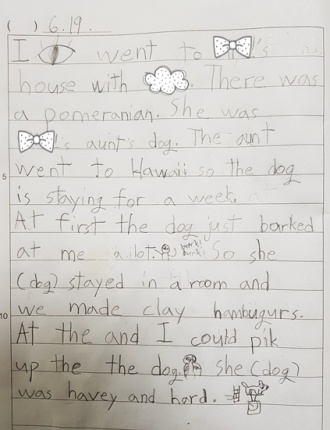 ( ) 6.19.
I went to 's
house with . There was
a pomeranian. She was
's aunt's dog. The aunt
5
went to Hawaii so the dog
is staying for a week.
At first the dog just barked
at me a lot. bark! bark! So she
(dog) stayed in a room and
10
we made clay hambugurs.
At the and I could pik
up the the dog. she (dog)
was havey and hard.